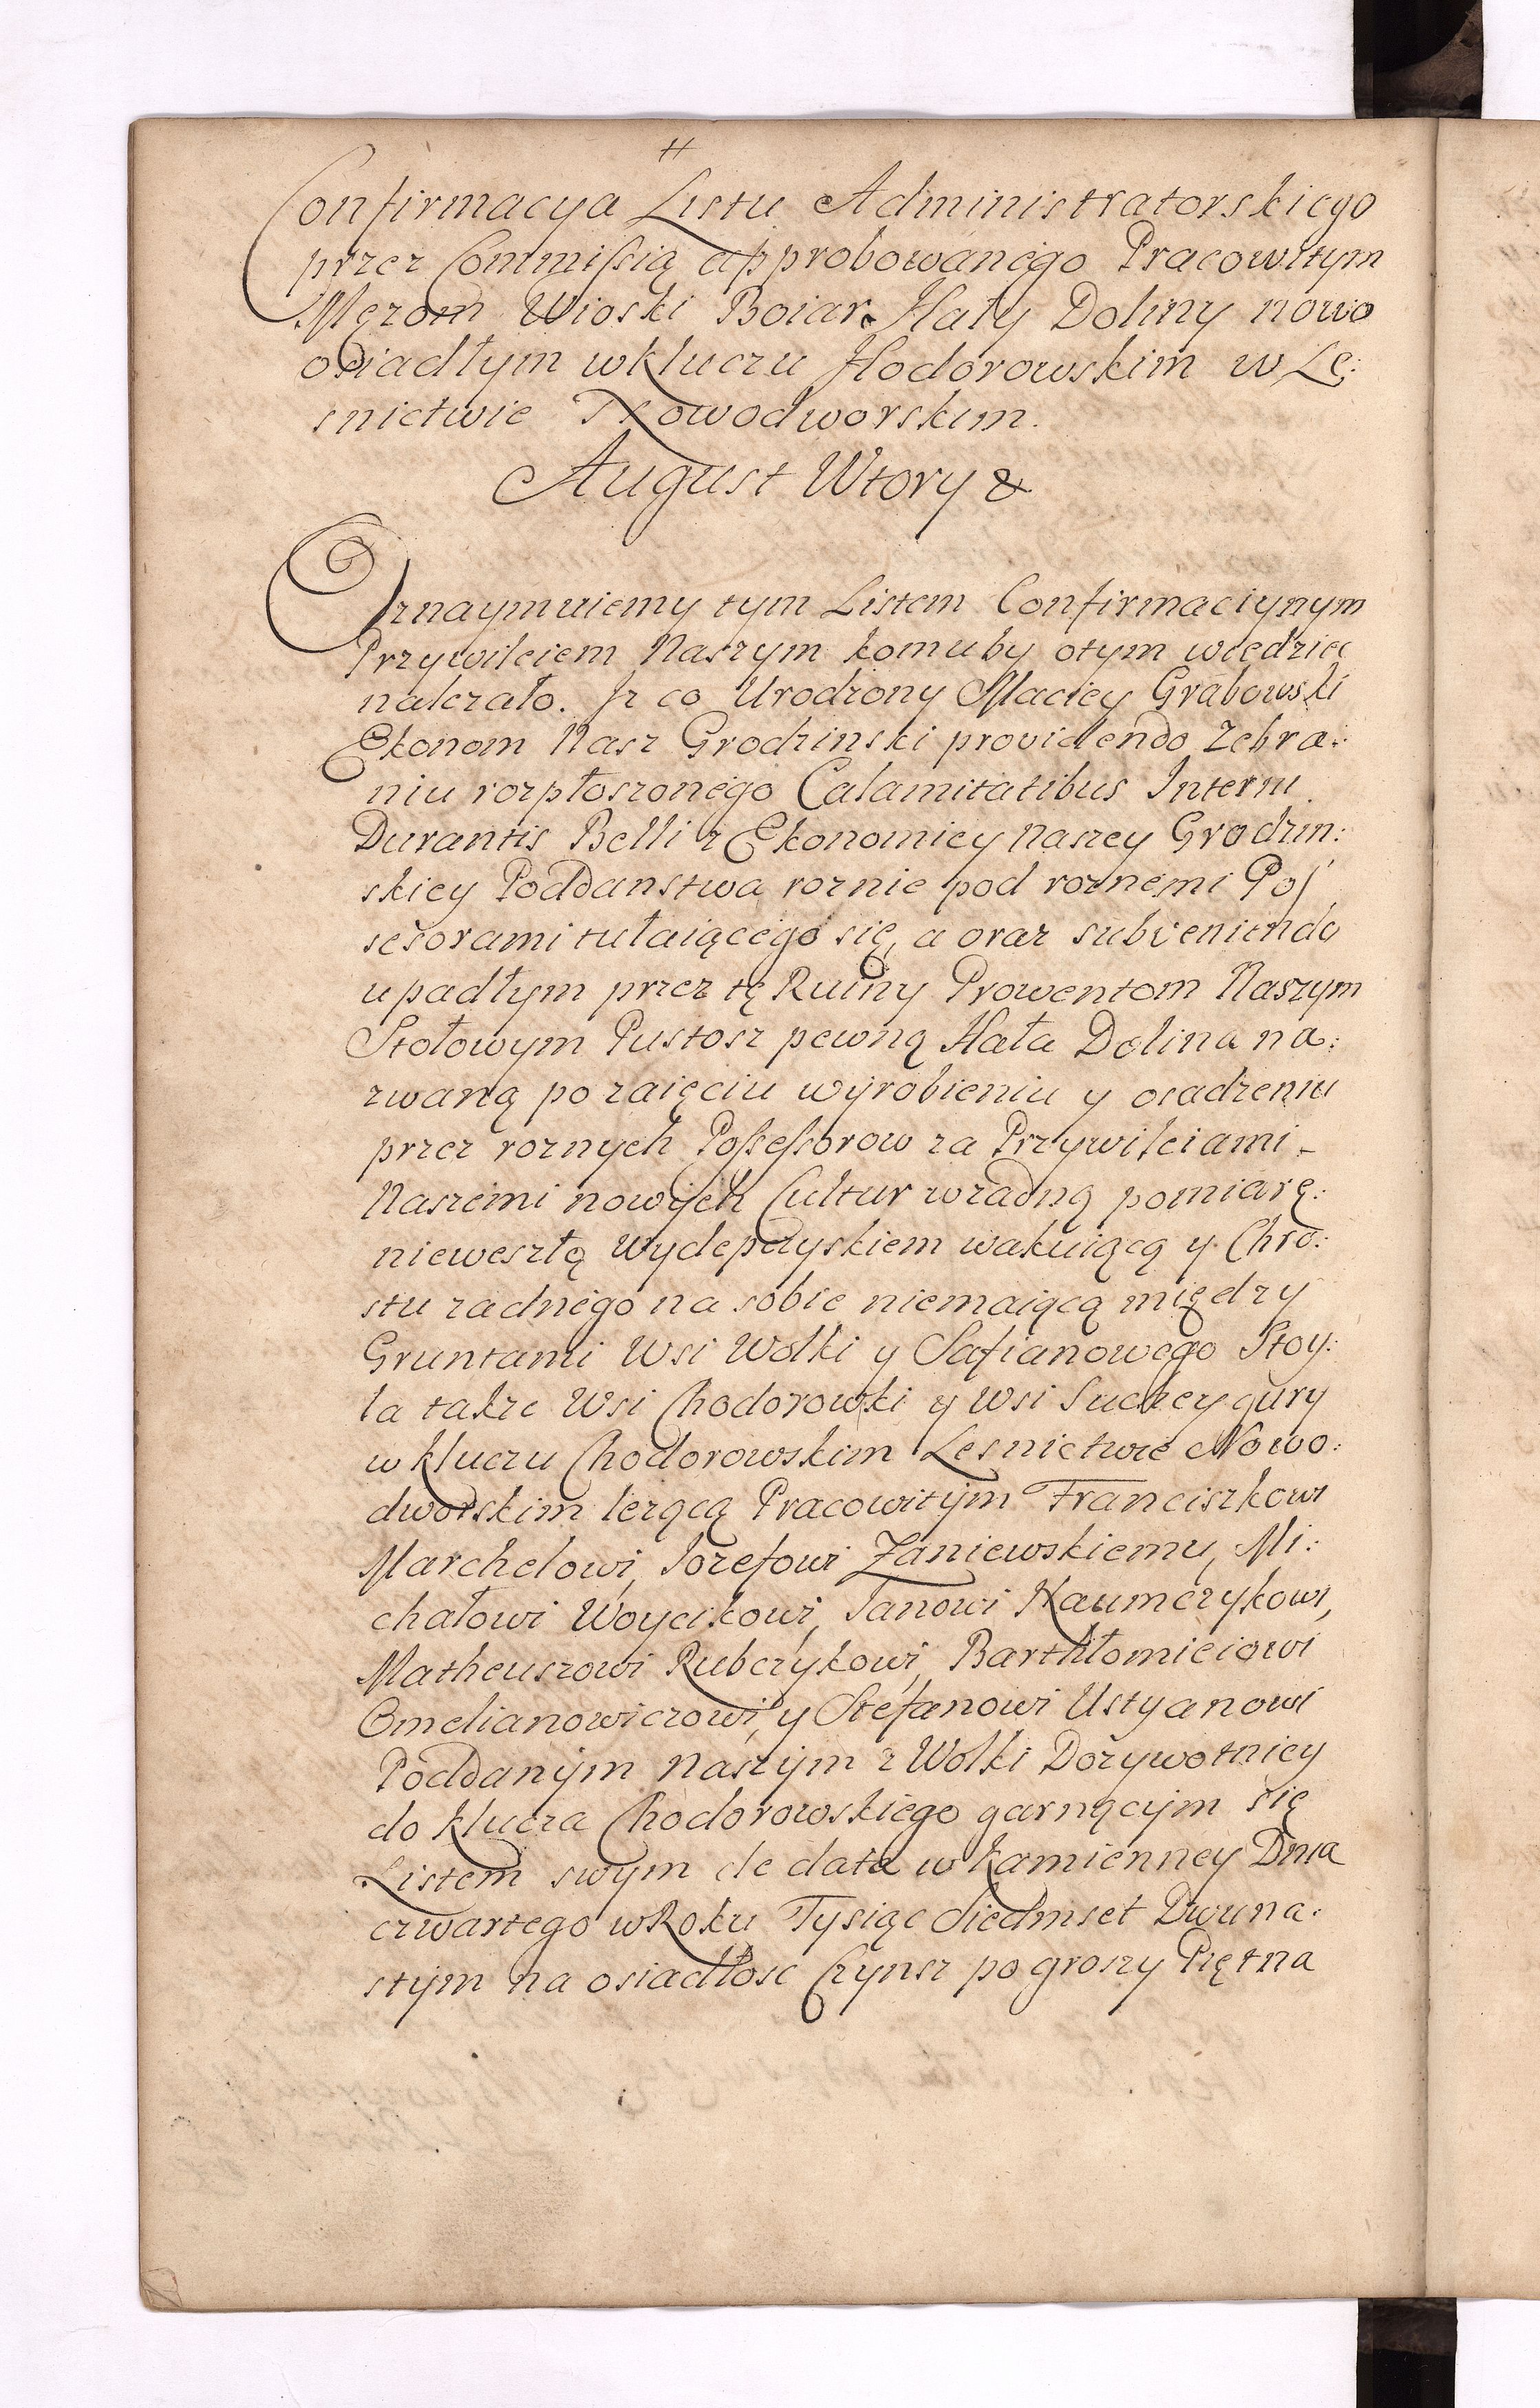 Confirmacya Listu Administratorskiego
przez Commißią approbowanego Pracowitym
Męzom Wioski Boiar Hały Doliny nowo
osiadłym w kluczu Hodorowskim w Le:
snictwie Nowodworskim.
August Wtory &
Oznaymuiemy tym Listem Confirmaciynym
Przywileiem Naszym komuby otym wiedziec
nalezało. Iz co Urodzony Maciey Grabowski
Ekonom Nasz Grodzinski providendo Zebra:
niu rozpłoszonego Calamitatibus Interni
Durantis Belli z Ekonomiey Naszey Grodzin:
skiey Poddanstwa roznie pod roznemi Pos
sesorami tułaiącego się, a oraz subveniendo
upadłym przez tę Ruiny Prowentom Naszym
Stołowym Pustosz pewną Hała Dolina na:
zwaną po zaięciu wyrobieniu y osadzeniu
przez roznych Poßeßorow za Przywileiami
Naszemi nowych Cultur wzadną pomiarę
nieweszłą Wydepczyskiem wakuiącą y Chro:
stu zadnego na sobie niemaiącą między
Gruntami Wsi Wolki y Safianowego Stoy:
la takze Wsi Chodorowki y Wsi Suchey gury
w kluczu Chodorowskim Lesnictwie Nowo:
dworskim lezącą Pracowitym Franciszkowi
Marchelowi, Iozefowi Zaniewskiemu, Mi:
chałowi Woycikowi, Ianowi Naumczykowi,
Matheuszowi Rubczykowi, Barthłomieiowi
Omelianowiczowi, y Stefanowi Ustyanowi
Poddanym Naszym z Wolki Dozywotniey
do klucza Chodorowskiego garnącym się
Listem swym de data w kamienney Dnia
czwartego w Roku Tysiąc Siedmset Dwuna:
stym na osiadłosc Czynsz po groszy Piętna